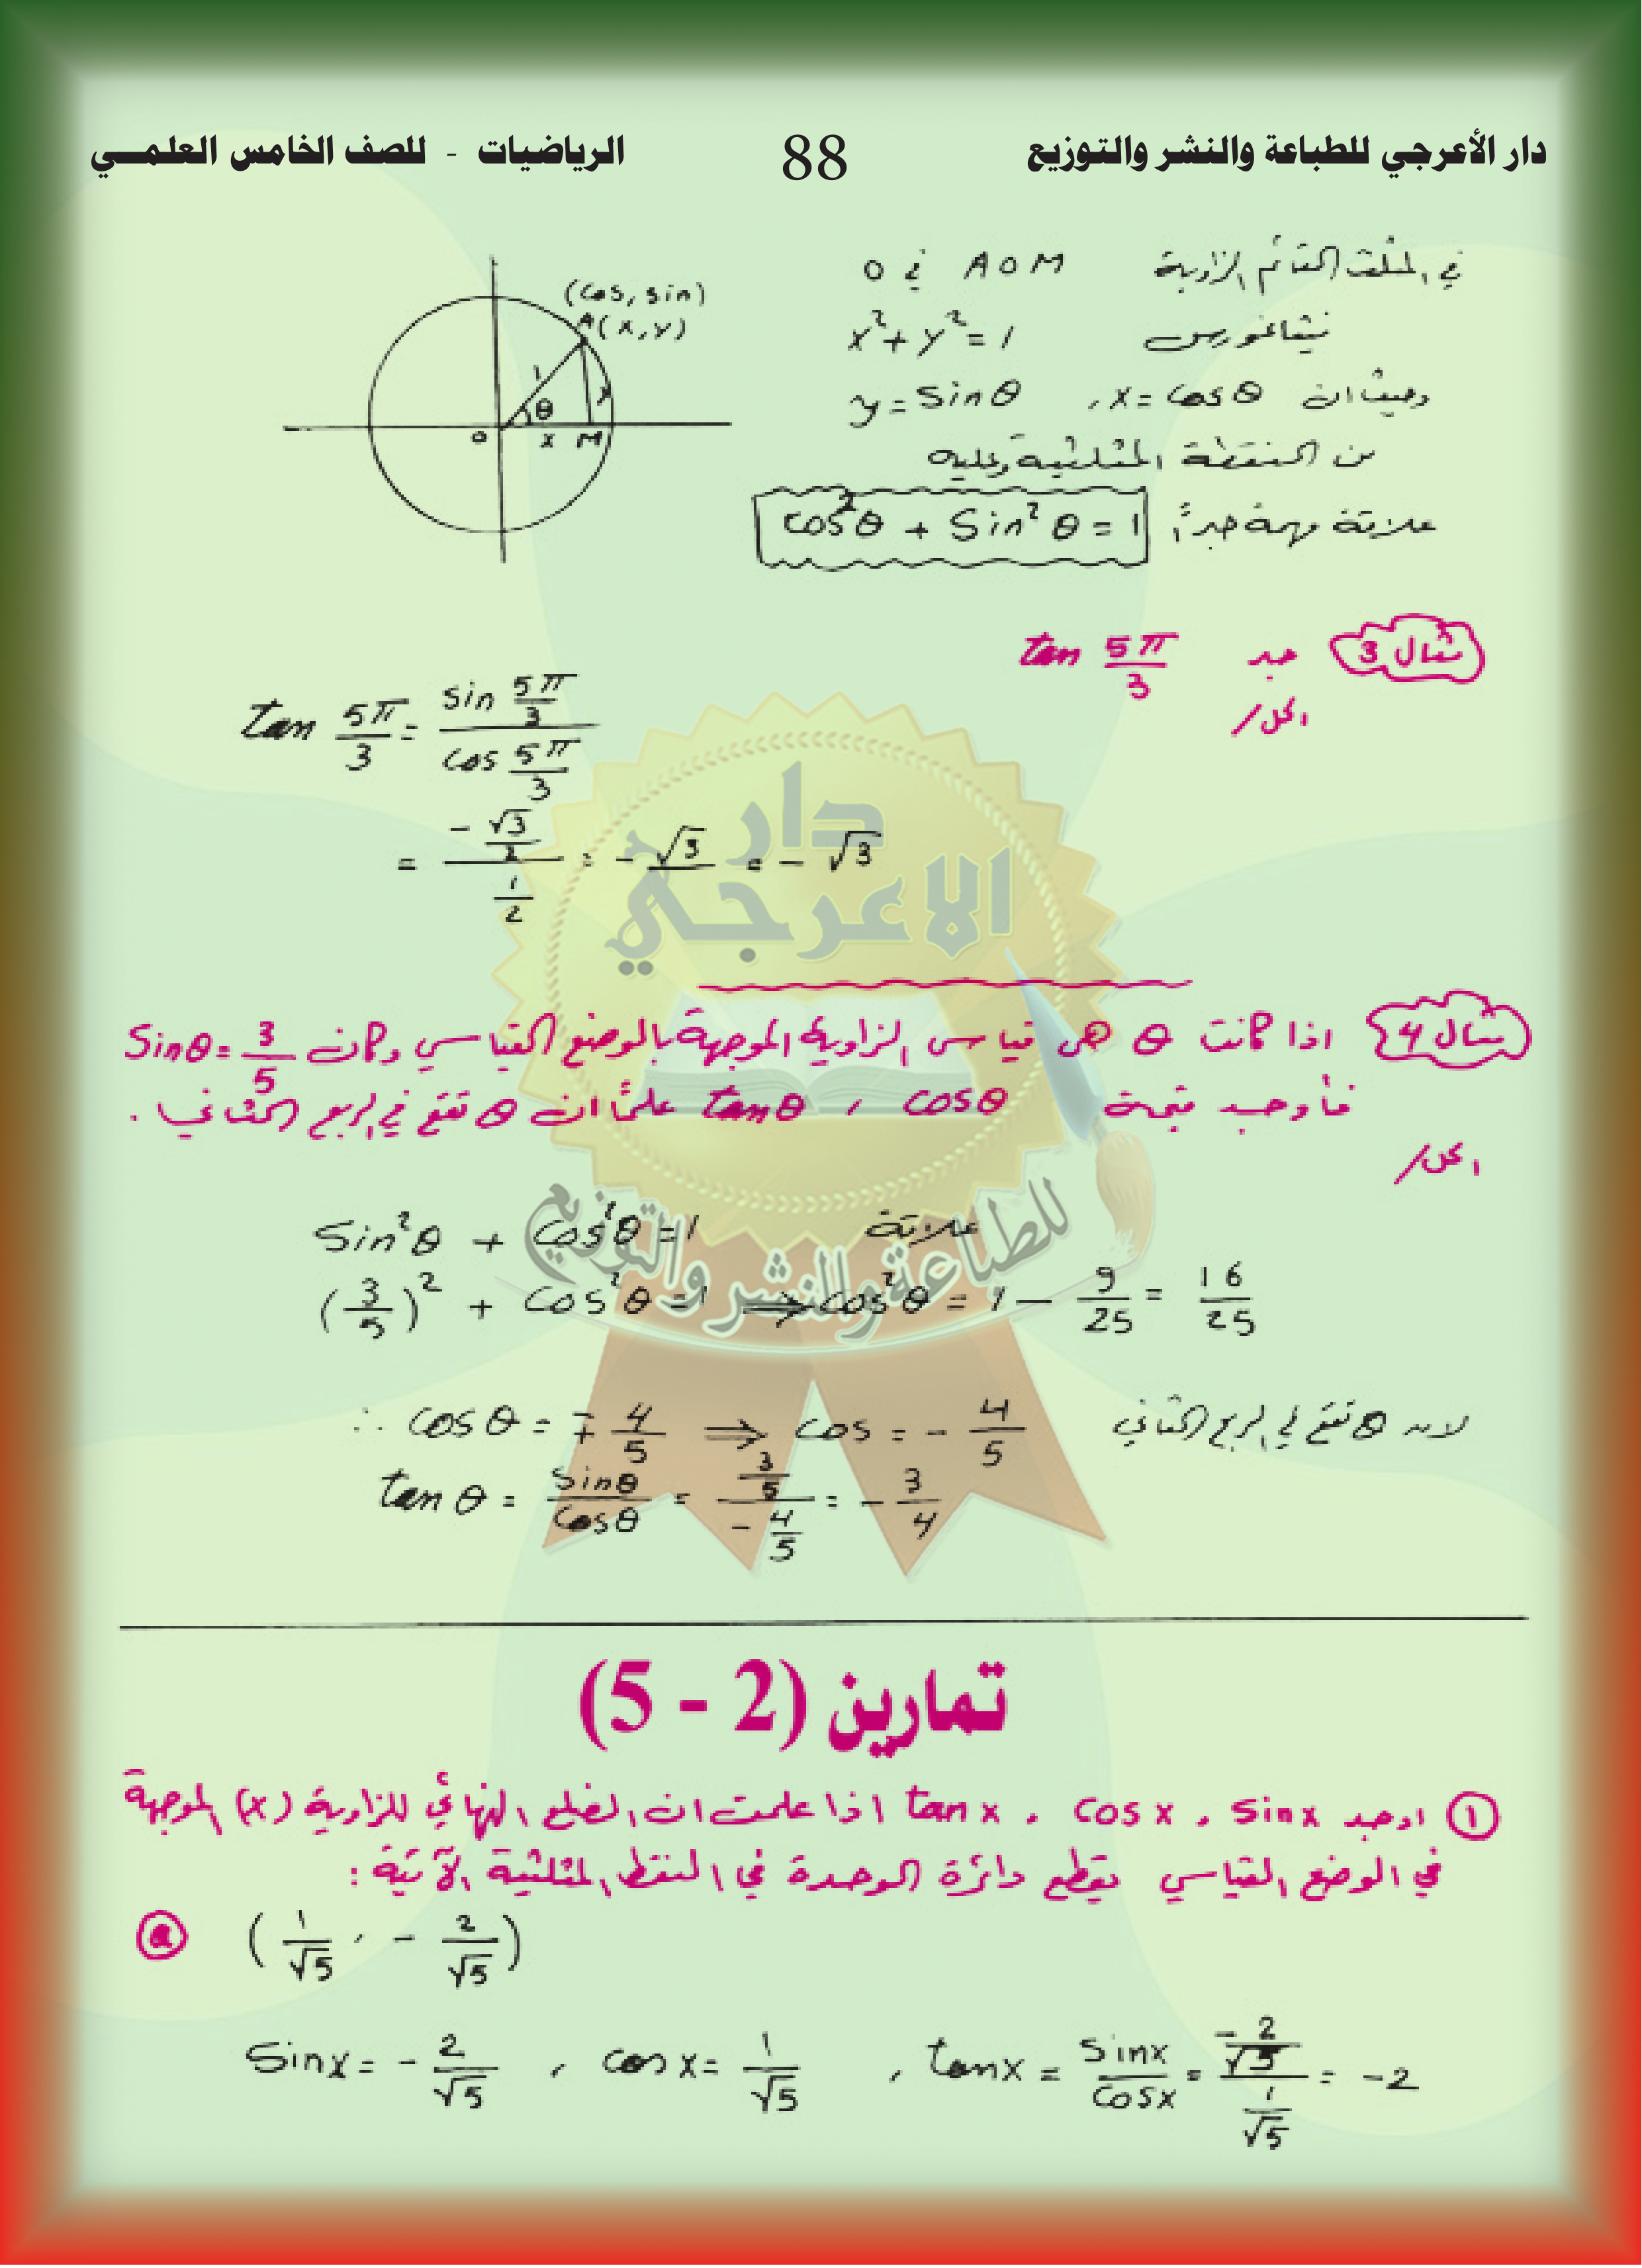 دار الأعرجي للطباعة والنشر والتوزيع 88 الرياضيات - للصف الخامس العلمـــي
في المثلث القائم الزاوية AOM في O
فيثاغورس x²+y²=1
وحيث ان x=cosθ ، y=sinθ
من النقطة المثلثية وعليه
علاقة مهمة جداً cos²θ + Sin²θ = 1
(Cos, sin)
A(x,y)
1
θ
y
O x M
مثال 3 جد tan 5π/3
الحل/
tan 5π/3 = sin 5π/3 / cos 5π/3
= -√3/2 / 1/2 = -√3 = -√3
دار
الاعرجي
للطباعة والنشر والتوزيع
مثال 4 اذا كانت θ هي قياس الزاوية الموجهة بالوضع القياسي وكان Sinθ = 3/5
فأوجد قيمة cosθ ، tanθ علماً ان θ تقع في الربع الثاني .
الحل/
Sin²θ + Cos²θ = 1 علاقة
(3/5)² + Cos²θ = 1 ⇒ cos²θ = 1 - 9/25 = 16/25
∴ cosθ = ∓ 4/5 ⇒ cos = - 4/5 لان θ تقع في الربع الثاني
tanθ = Sinθ/Cosθ = 3/5 / -4/5 = - 3/4
تمارين (2 - 5)
① اوجد sinx ، cosx ، tanx اذا علمت ان الضلع النهائي للزاوية (x) الموجهة
في الوضع القياسي يقطع دائرة الوحدة في النقط المثلثية الآتية :
ⓐ (1/√5 ، - 2/√5)
Sinx = - 2/√5 ، cosx = 1/√5 ، tanx = sinx/cosx = -2/√5 / 1/√5 = -2